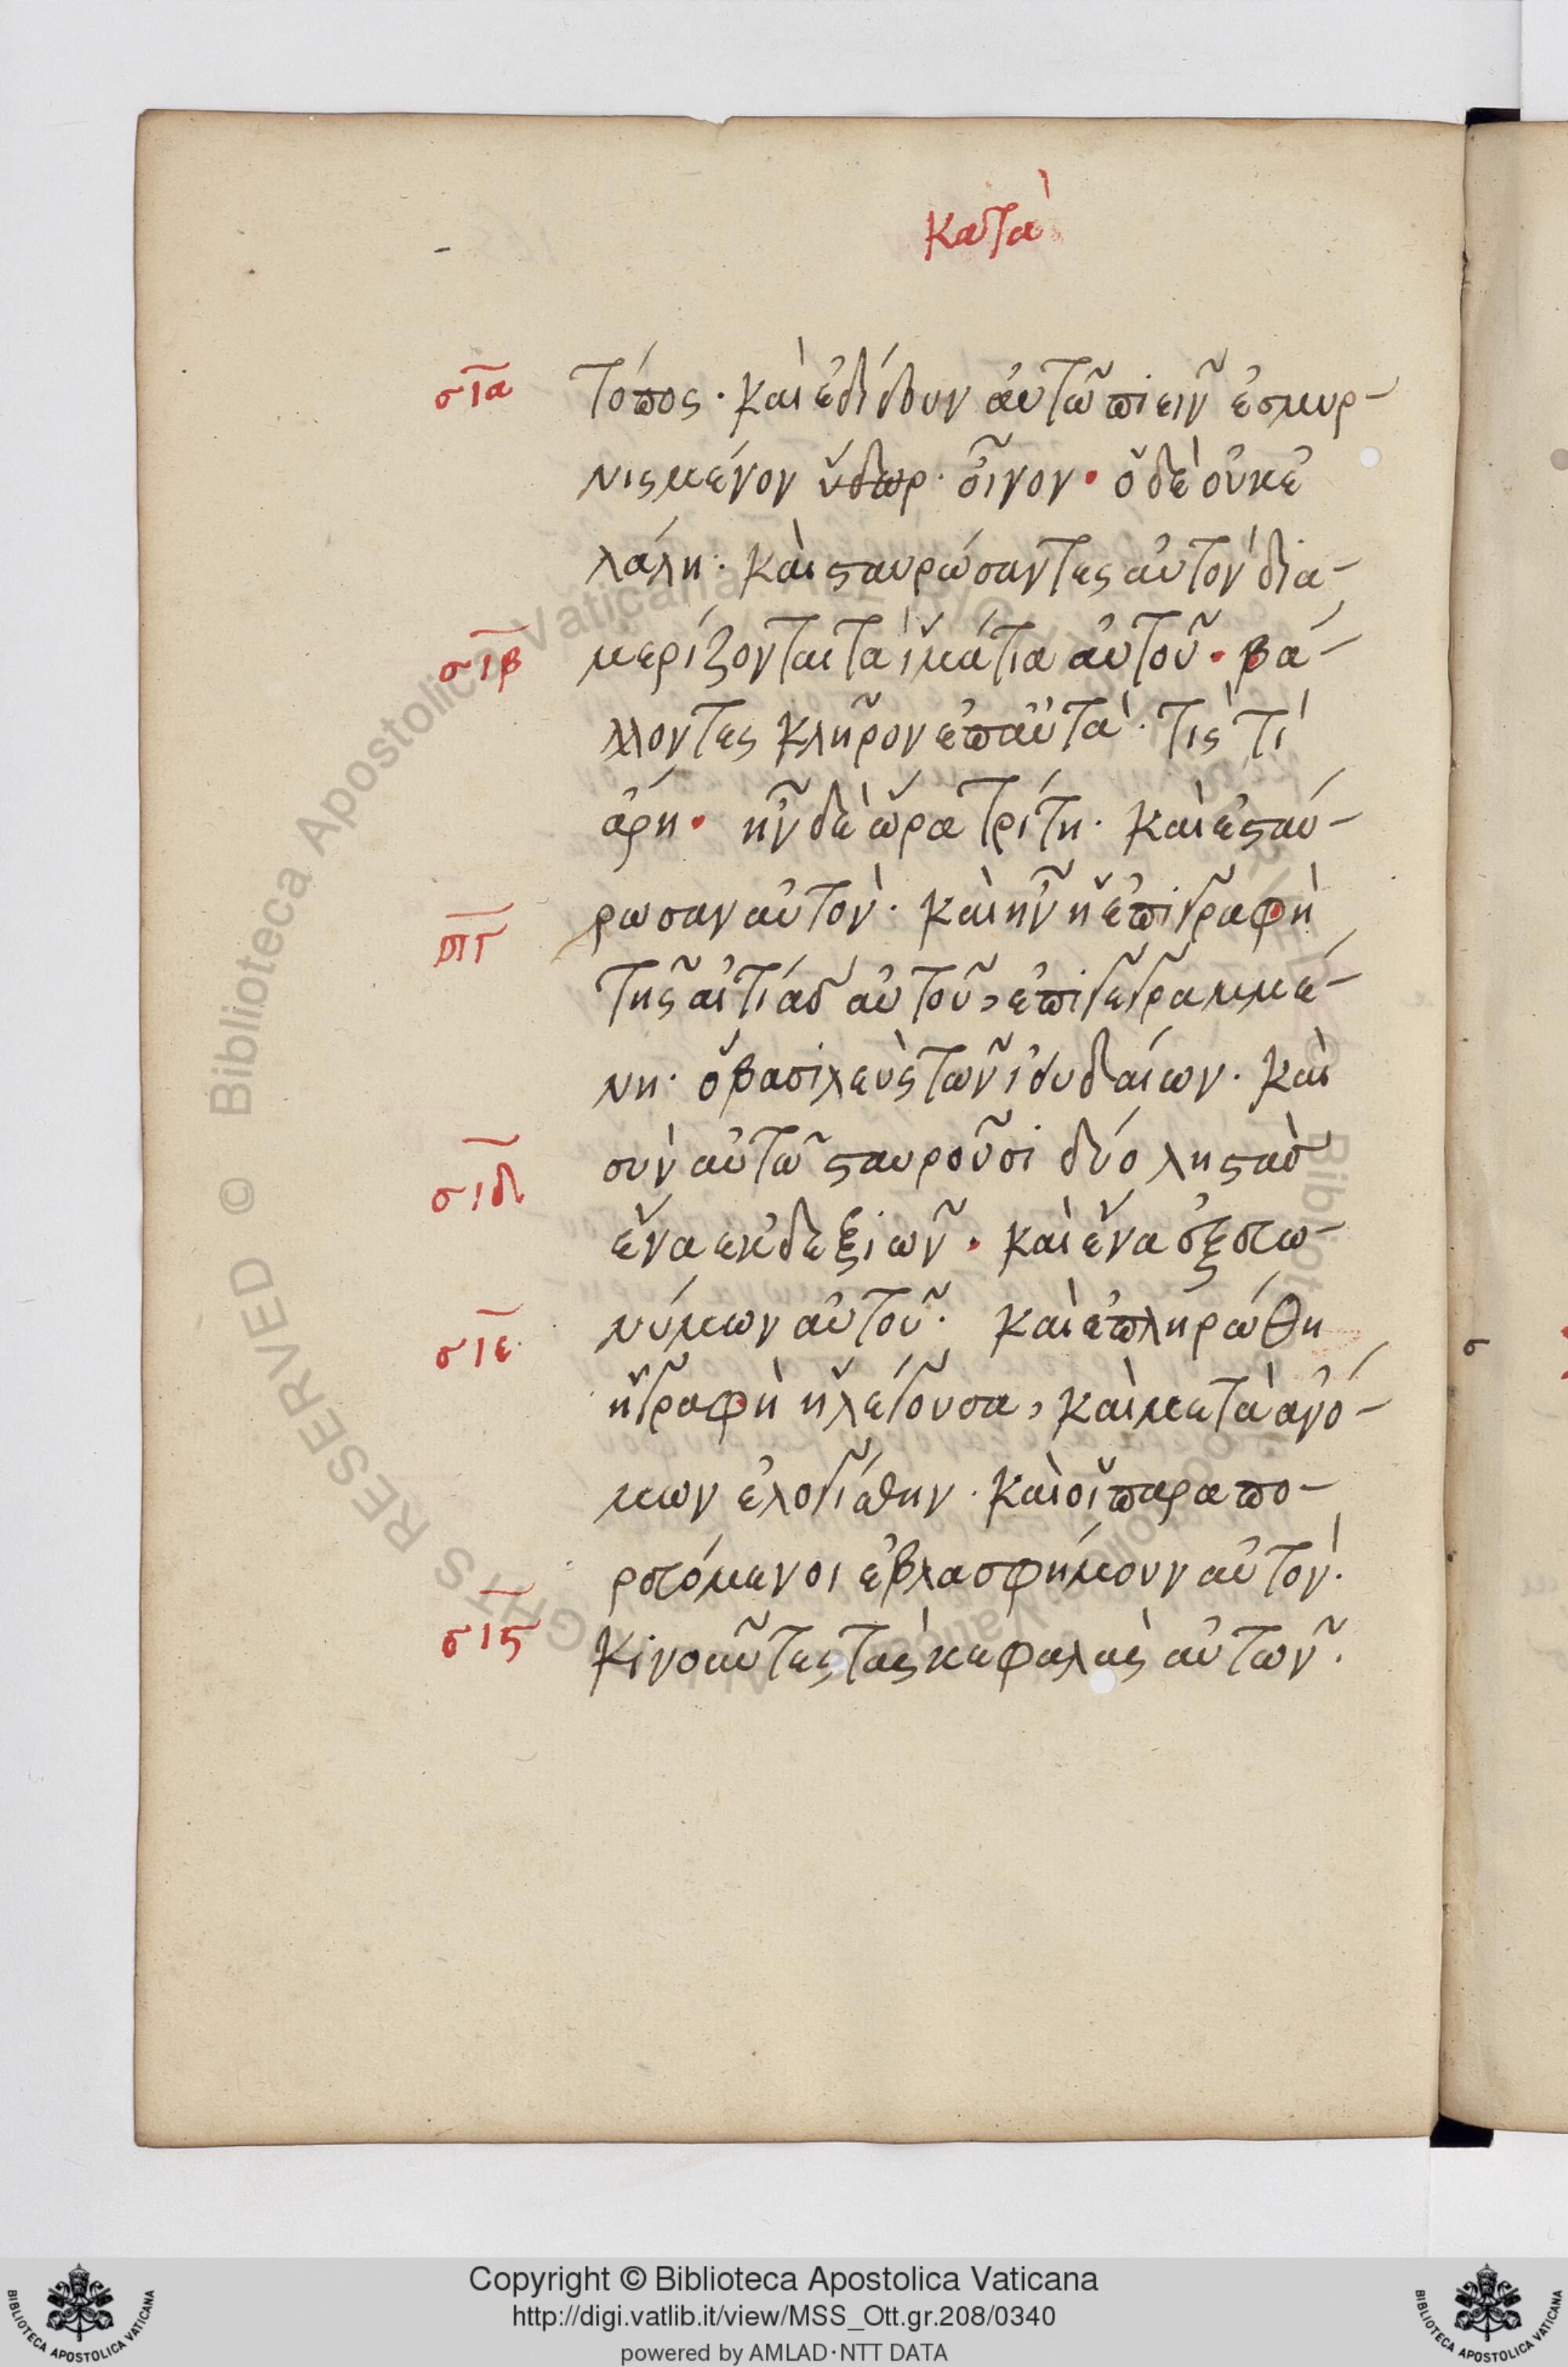 κατὰ
σια τόπος· καὶ ἐδίδουν ἀυτῶ πιεῖν ἐσμυρ-
νισμένον ὕδωρ· οἶνον· ὁ δὲ οὐκ ἐ
λάλη· καὶ σταυρώσαντες αὐτὸν δια-
σιβ μερίζονται τὰ ἱμάτια αὐτοῦ· βά-
λλοντες κλῆρον ἐπ αὐτὰ· τὶς τί
ἄρη· ἦν δὲ ὥρα τρίτη· καὶ ἐσταύ-
ρωσαν αὐτὸν· καὶ ἦν ἡ ἐπιγραφὴ
σιγ τῆς αἰτίας αὐτοῦ, ἐπιγεγραμμέ-
νη· ὁ βασιλεὺς τῶν ἰουδαίων· καὶ
σιδ σὺν αὐτῶ σταυροῦσι δύο ληστὰς
ἕνα εκ δεξιῶν· καὶ ἕνα ἐξ ευω-
σιε νύμων αὐτοῦ· καὶ ἐπληρώθη
ἡ γραφὴ ἡ λέγουσα, καὶ μετὰ ἀνό-
μων ἐλογίσθην· καὶ οἱ παραπο-
ρευόμενοι ἐβλασφήμουν αὐτὸν·
σιϛ κινοῦντες τὰς κεφαλὰς αὐτῶν·
σ
© Biblioteca Apostolica Vaticana ALL RIGHTS RESERVED
Copyright © Biblioteca Apostolica Vaticana
http://digi.vatlib.it/view/MSS_Ott.gr.208/0340
powered by AMLAD·NTT DATA
BIBLIOTECA APOSTOLICA VATICANA
BIBLIOTECA APOSTOLICA VATICANA